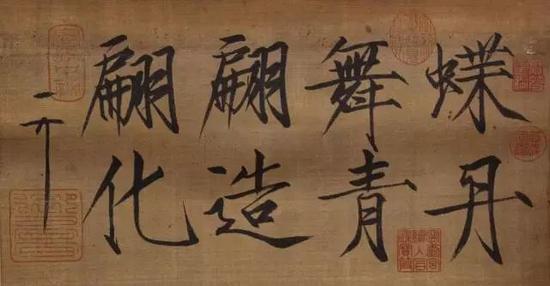 蝶舞翩翩
丹青造化